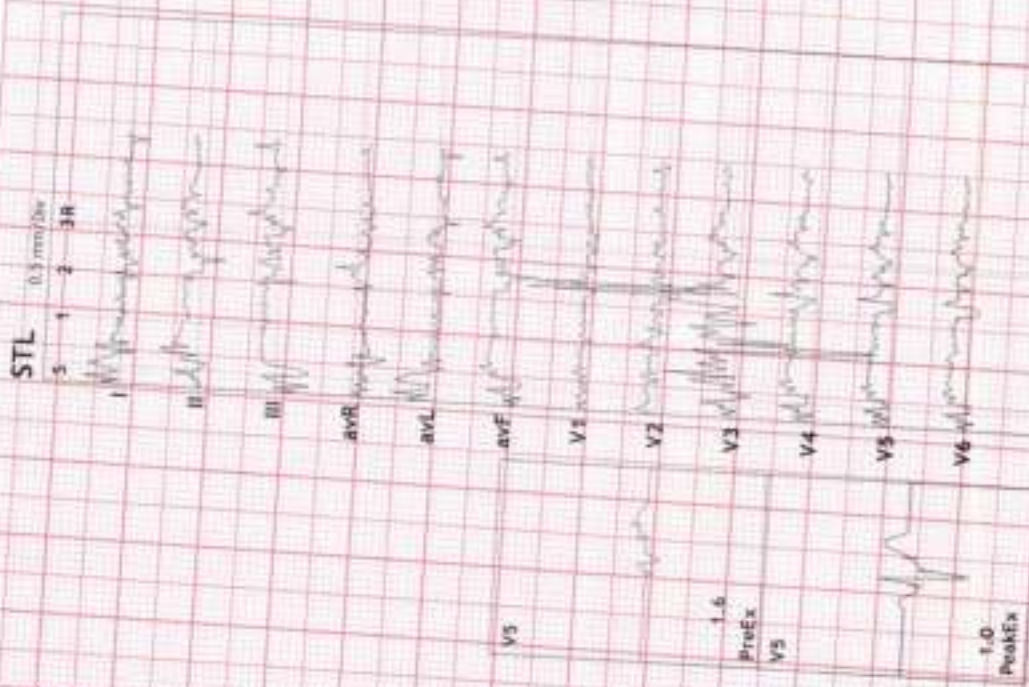 STL
0.5 mm/Div
S 1 2 3 R
I
II
III
avR
avL
avF
V1
V2
V3
V4
V5
V6
V5
1.6
PreEx
V5
1.0
PeakEx